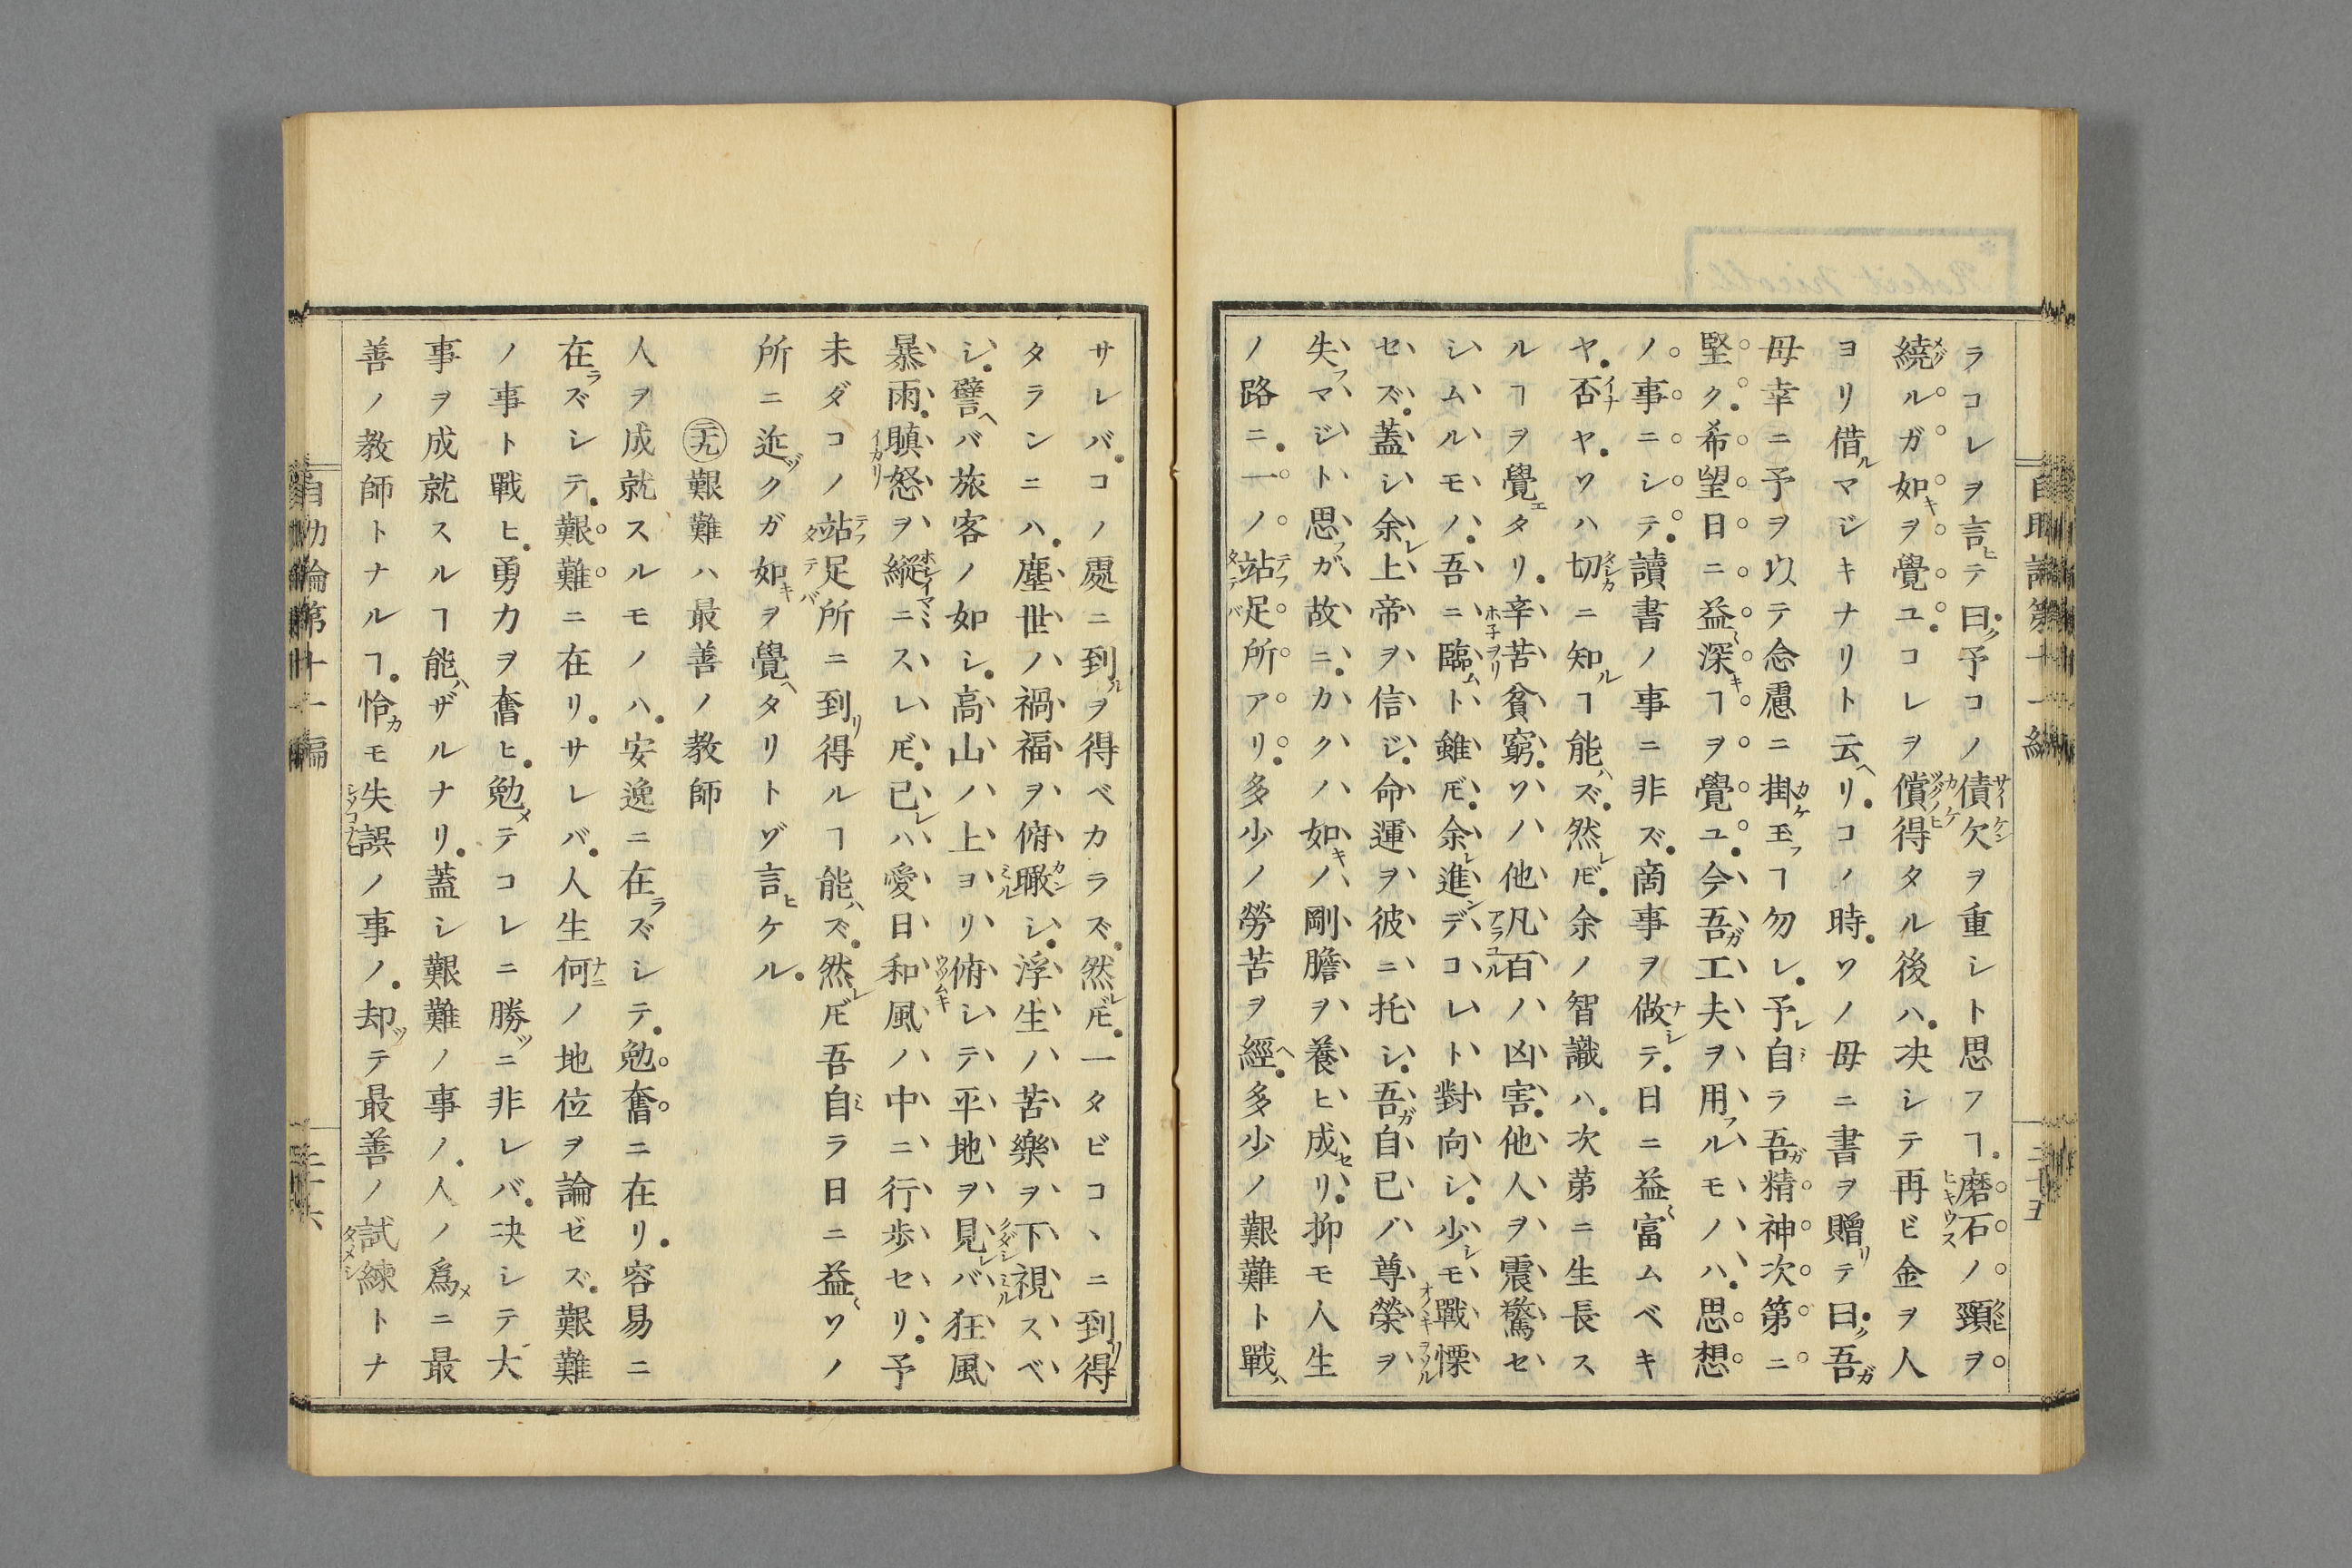 ラコレヲ言ヒテ曰ク予コノ債欠ヲ重シト思フヿ磨石ノ頸ヲ
繞ルガ如キヲ覺ユコレヲ償得タル後ハ决シテ再ビ金ヲ人
ヨリ借ルマジキナリト云ヘリコノ時ソノ母ニ書ヲ贈リテ曰ク吾ガ
母幸ニ予ヲ以テ念慮ニ掛玉フヿ勿レ予レ自ラ吾ガ精神次第ニ
堅ク希望日ニ益〻深キヿヲ覺ユ今吾ガ工夫ヲ用フルモノハ思想
ノ事ニシテ讀書ノ事ニ非ズ啇事ヲ做シテ日ニ益〻富ムベキ
ヤ否ヤソハ切ニ知ルヿ能ハズ然レ𪜈余ノ智識ハ次第ニ生長ス
ルヿヲ覺エタリ辛苦貧窮ソノ他凡百ノ凶害他人ヲ震驚セ
シムルモノ吾ニ臨ムト雖𪜈余レ進ンデコレト對向シ少シモ戰慄
セズ蓋シ余レ上帝ヲ信ジ命運ヲ彼ニ托シ吾ガ自己ノ尊榮ヲ
失フマジト思フガ故ニカクノ如キノ剛膽ヲ養ヒ成セリ抑モ人生
ノ路ニ一ノ站足所アリ多少ノ勞苦ヲ經ヘ多少ノ艱難ト戰ハ
サレバコノ處ニ到ルヲ得ベカラズ然レ𪜈一タビコヽニ到リ得
タランニハ塵世ノ禍福ヲ俯瞰シ浮生ノ苦樂ヲ下視スベ
シ譬ヘバ旅客ノ如シ高山ノ上ヨリ俯シテ平地ヲ見レバ狂風
暴雨瞋怒ヲ縱ニスレ𪜈己レハ愛日和風ノ中ニ行歩セリ予
未ダコノ站足所ニ到リ得ルヿ能ハズ然レ𪜈吾自ラ日ニ益〻ソノ
所ニ近ヅクガ如キヲ覺ヘタリトゾ言ヒケル
二九 艱難ハ最善ノ教師
人ヲ成就スルモノハ安逸ニ在ラズシテ勉奮ニ在リ容易ニ
在ラズシテ艱難ニ在リサレバ人生何ノ地位ヲ論ゼズ艱難
ノ事ト戰ヒ勇力ヲ奮ヒ勉メテコレニ勝ツニ非レバ决シテ大
事ヲ成就スルヿ能ハザルナリ蓋シ艱難ノ事ノ人ノ爲メニ最
善ノ教師トナルヿ恰カモ失誤ノ事ノ却ツテ最善ノ試練トナ
自助論第十一編
二十六